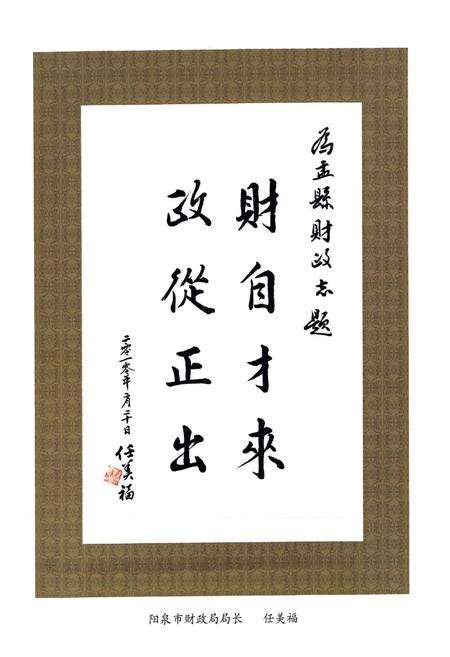 为盂縣財政志题
財自才來
政從正出
二零一零年六月二十日
任美福
阳泉市财政局局长 任美福